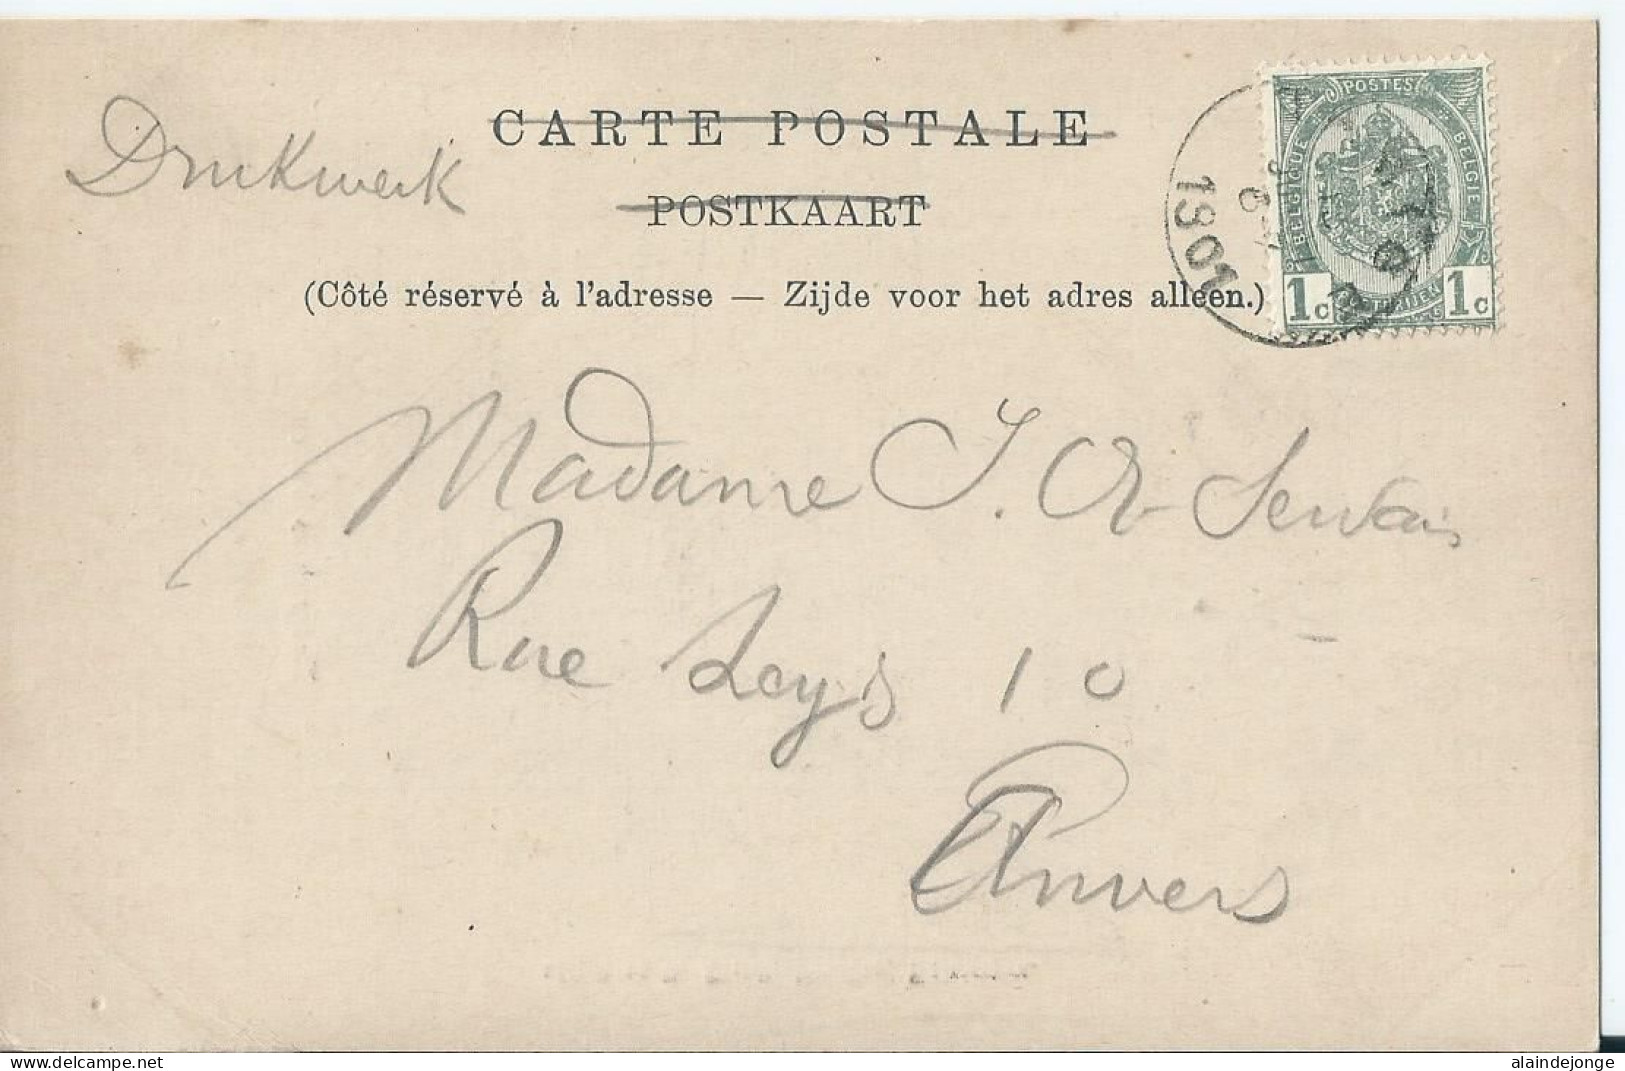 Drukwerk
CARTE POSTALE
POSTKAART
(Côté réservé à l'adresse — Zijde voor het adres alleen.)
POSTES
BELGIQUE
BELGIE
POSTERIJEN
1c
1c
1901
Madame J. Servais
Rue Leys 10
Anvers
www.delcampe.net
alaindejonge